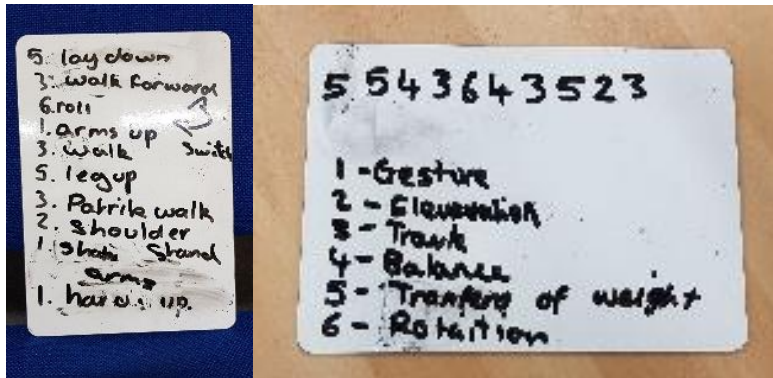 5. lay down
3. walk forward
6. roll
1. arms up
3. walk switch
5. leg up
3. Patrik walk
2. shoulder
1. stand
arms
1. hands up.
5 5 4 3 6 4 3 5 2 3
1 - Gesture
2 - Elevation
3 - Travle
4 - Balance
5 - Tranferd of weight
6 - Rotaition